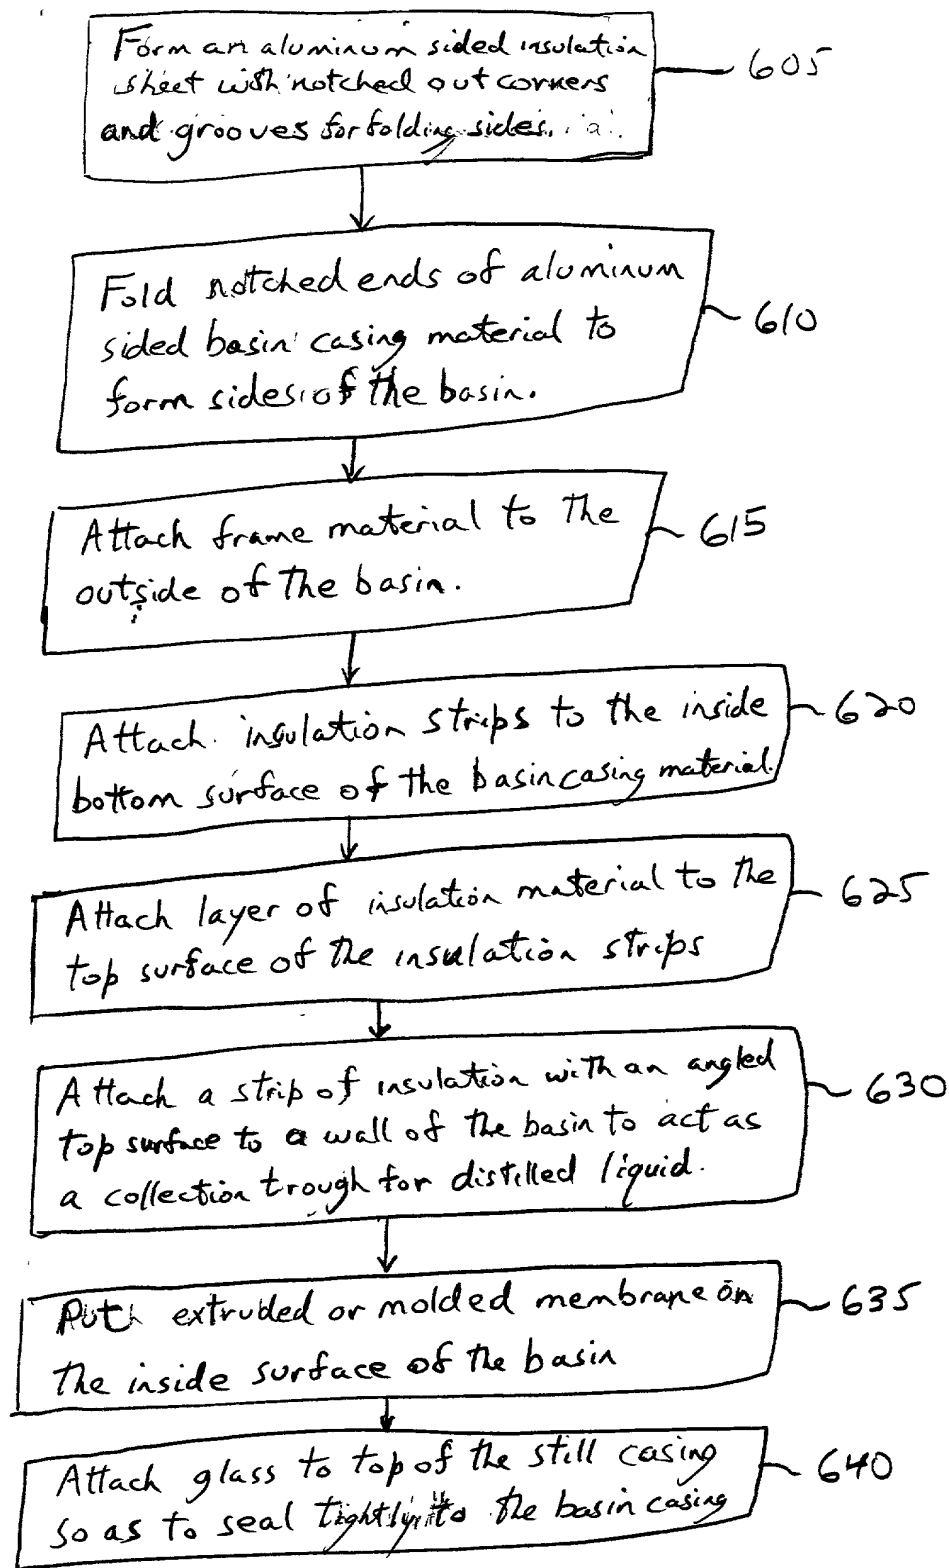 Form an aluminum sided insulation
sheet with notched out corners
and grooves for folding sides.
605
Fold notched ends of aluminum
sided basin casing material to
form sides of the basin.
610
Attach frame material to the
outside of the basin.
615
Attach insulation strips to the inside
bottom surface of the basin casing material.
620
Attach layer of insulation material to the
top surface of the insulation strips
625
Attach a strip of insulation with an angled
top surface to a wall of the basin to act as
a collection trough for distilled liquid.
630
Put extruded or molded membrane on
the inside surface of the basin
635
Attach glass to top of the still casing
so as to seal tightly to the basin casing
640